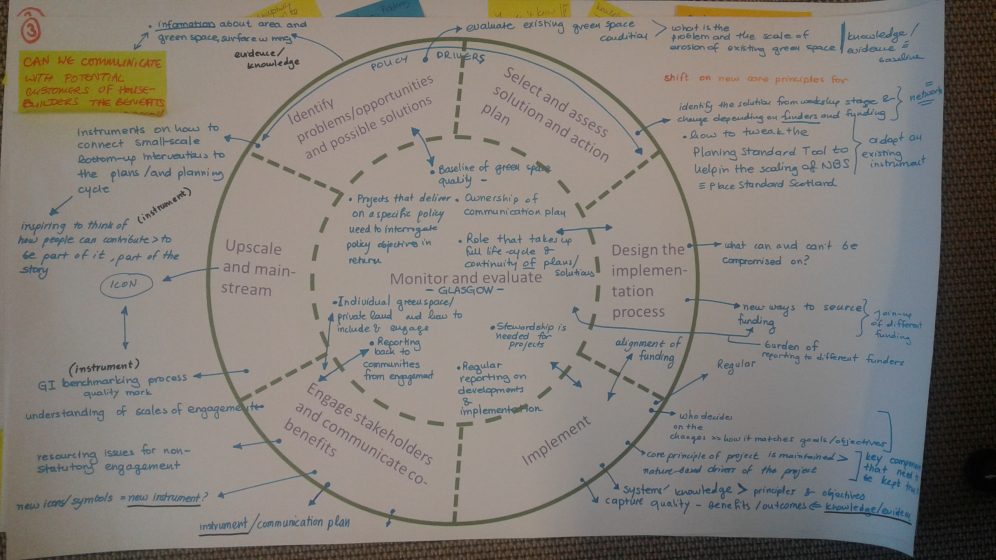 3
CAN WE COMMUNICATE
WITH POTENTIAL
CUSTOMERS OF HOUSE-
BUILDERS THE BENEFITS
• information about area and
green space, surface
evidence/
knowledge
POLICY DRIVERS
evaluate existing green space
condition
what is the
problem and the scale of
erosion of existing green space
knowledge/
evidence =
baseline
shift on new core principles for
identify the solution from workshop stage &
change depending on funders and funding
network
• how to tweak the
Planing Standard Tool to
help in the scaling of NBS
= Place Standard Scotland
adapt an
existing
instrument
Identify
problems/opportunities
and possible solutions
Select and assess
solution and action
plan
Instruments on how to
connect small-scale
bottom-up interventions to
the plans/and planning
cycle
(instrument)
inspiring to think of
how people can contribute > to
be part of it, part of the
story
ICON
(instrument)
GI benchmarking process
quality mark
understanding of scales of engagement
resourcing issues for non-
statutory engagement
new icons/symbols = new instrument?
instrument/communication plan
Upscale
and main-
stream
• Baseline of green space
quality –
• Projects that deliver
on a specific policy
need to interrogate
policy objective in
return
• Ownership of
communication plan
• Role that takes up
full life-cycle &
continuity of plans/
solutions
Monitor and evaluate
– GLASGOW –
• Individual greenspace/
private land and how to
include & engage
• Reporting
back to
communities
from engagement
• Stewardship is
needed for
projects
• Regular
reporting on
developments
&
implementation
Design the
implemen-
tation
process
what can and can't be
compromised on?
new ways to source
funding
join-up
of different
funding
burden of
reporting to different funders
alignment of
funding
Regular
Engage stakeholders
and communicate co-
benefits
Implement
who decides
on the
changes >> how it matches goals/objectives
core principle of project is maintained >
nature-based driver of the project
key component
that need to
be kept
systems' knowledge > principles & objectives
capture quality – benefits/outcomes = knowledge/evidence